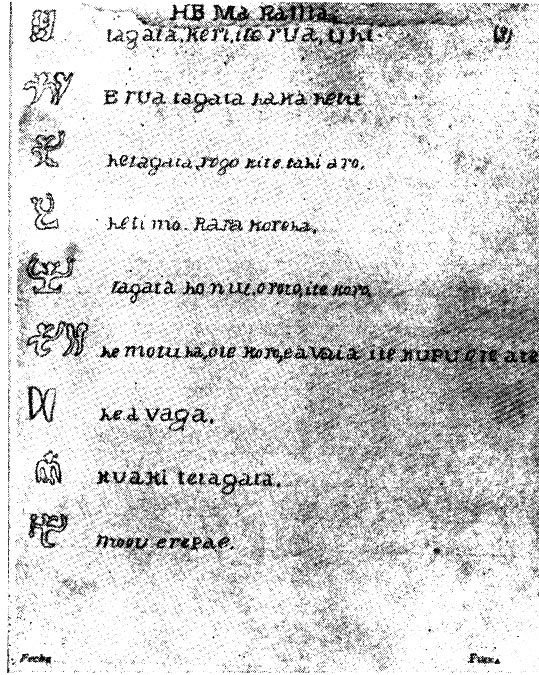 tagata, keri, ite rua, uhi. (3)
E rua tagata haka hetu
hetagata, rogo kite. tahi aro.
heti mo. Rara korena.
tagata ho nui, o roto, ite koro,
he motu ha, ote koro, ea vaia ite KUPU ote ate
he a vaga.
kuaki tetagata.
mouu erepae.
Fecha Firma